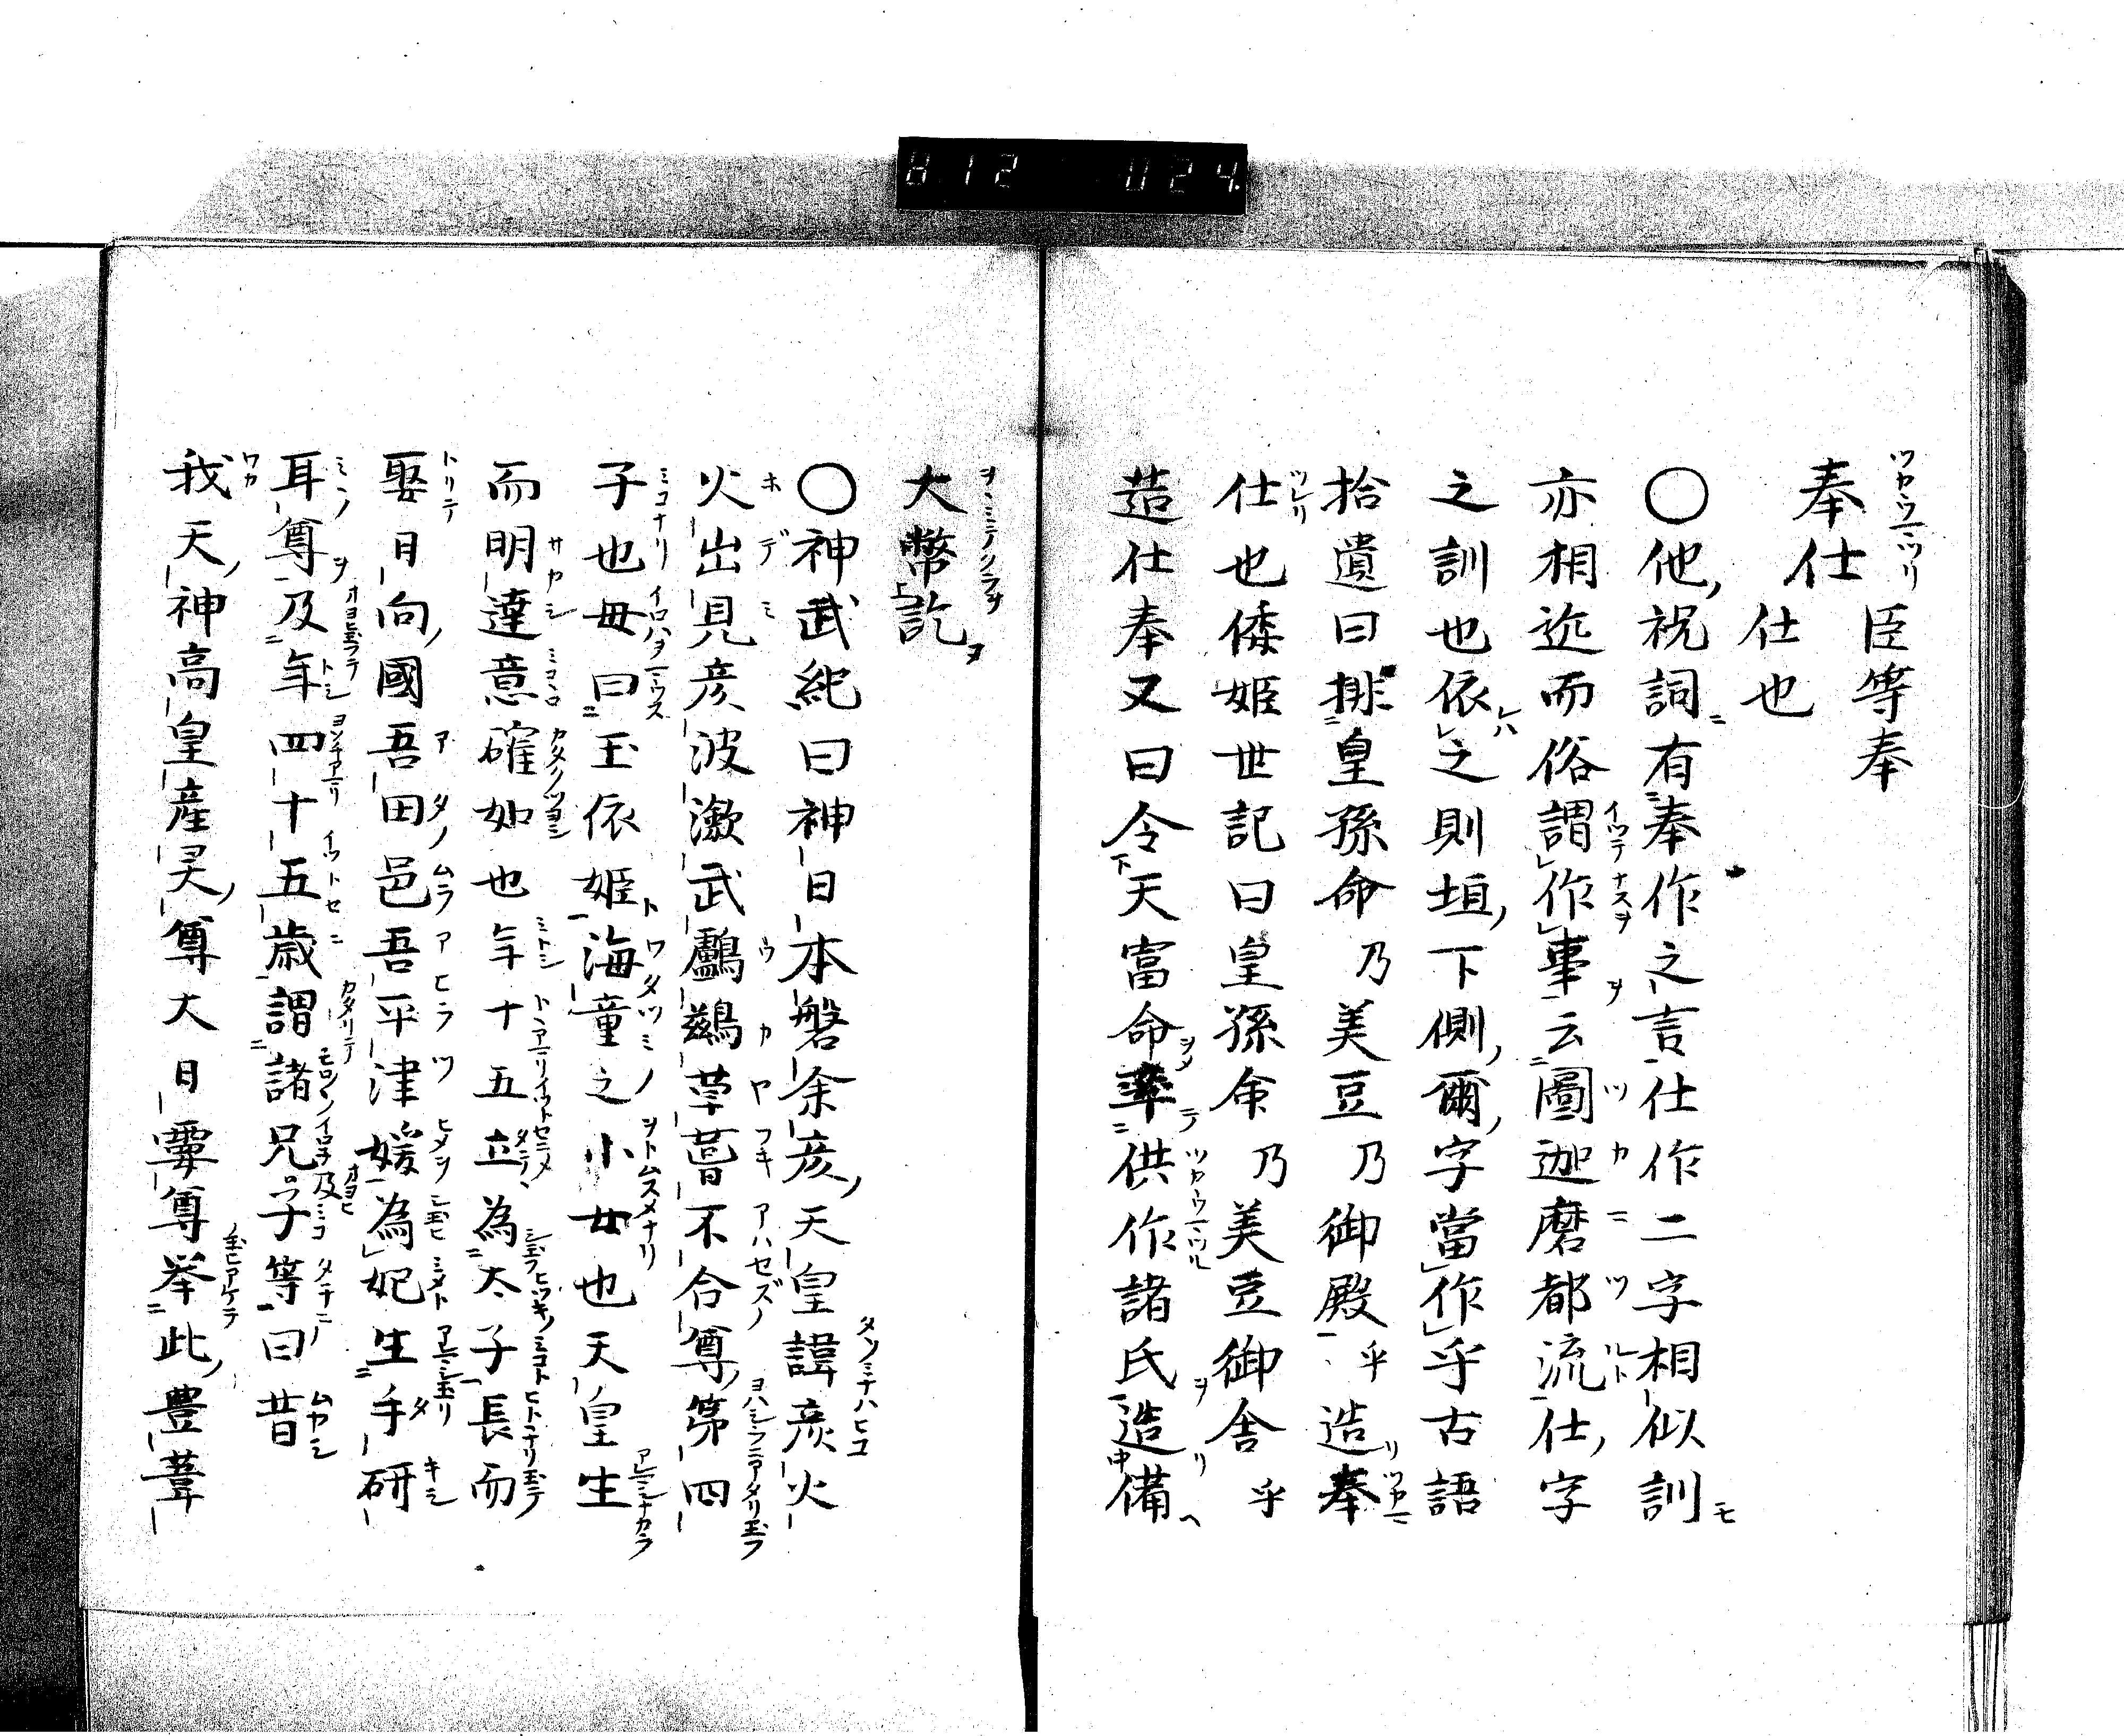 812 024
奉仕 臣等奉
仕也
〇他祝詞有奉作之言仕作二字相似訓
亦相近而俗謂作事云圖迦磨都流仕字
之訓也依之則垣下側爾字當作乎古語
拾遺曰排皇孫命乃美豆乃御殿乎造奉
仕也倭姫世記曰皇孫命乃美豆御舎乎
造仕奉又曰令天富命率供作諸氏造備
大幣訖
〇神武紀曰神日本磐余彦天皇諱彦火
火出見彦波瀲武鸕鶿草葺不合尊第四
子也母曰玉依姫海童之小女也天皇生
而明達意確如也年十五立為太子長而
娶日向國吾田邑吾平津媛為妃生手研
耳尊及年四十五歳謂諸兄子等曰昔
我天神高皇産灵尊大日孁尊挙此豊葦